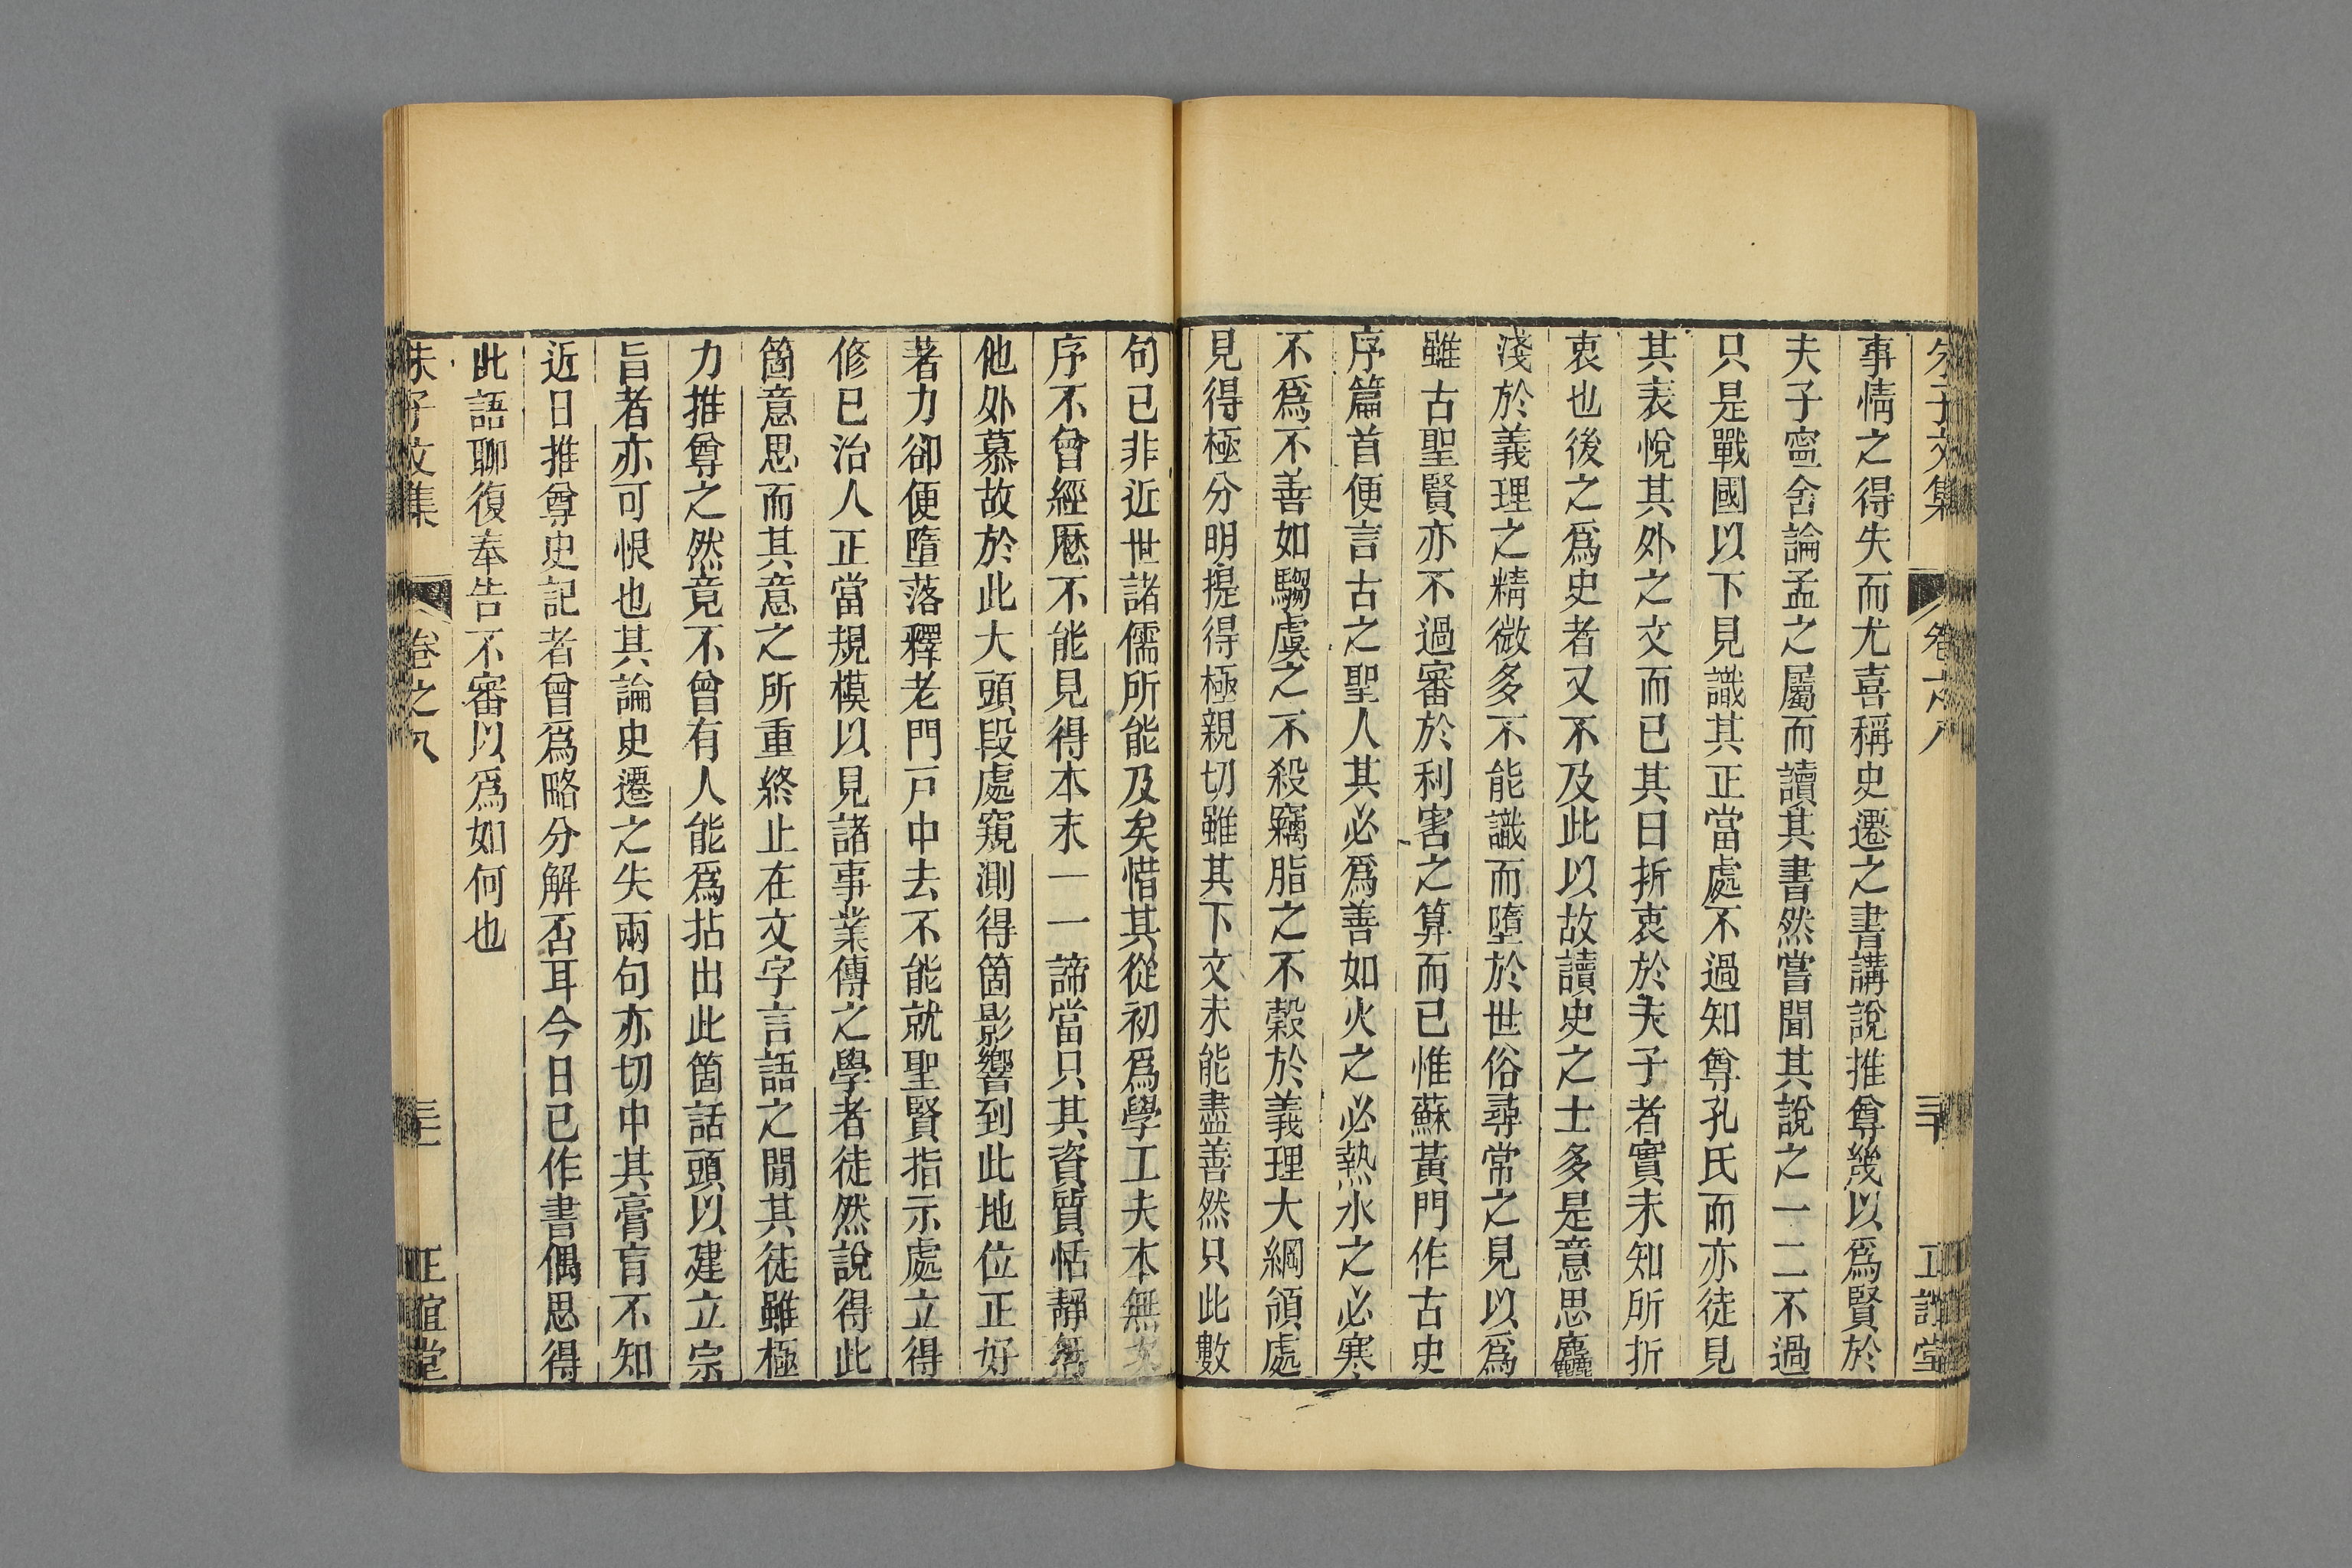 朱子文集 卷之八 三十 正誼堂
事情之得失而尤喜稱史遷之書講說推尊幾以爲賢於
夫子寧舍論孟之屬而讀其書然嘗聞其說之一二不過
只是戰國以下見識其正當處不過知尊孔氏而亦徒見
其表悅其外之文而已其曰折衷於夫子者實未知所折
衷也後之爲史者又不及此以故讀史之士多是意思麤
淺於義理之精微多不能識而墮於世俗尋常之見以爲
雖古聖賢亦不過審於利害之算而已惟蘇黃門作古史
序篇首便言古之聖人其必爲善如火之必熱水之必寒
不爲不善如騶虞之不殺竊脂之不穀於義理大綱領處
見得極分明提得極親切雖其下文未能盡善然只此數
句已非近世諸儒所能及矣惜其從初爲學工夫本無次
序不曾經歷不能見得本末一一諦當只其資質恬靜無
他外慕故於此大頭段處窺測得箇影響到此地位正好
著力卻便墮落釋老門戸中去不能就聖賢指示處立得
修已治人正當規模以見諸事業傳之學者徒然說得此
箇意思而其意之所重終止在文字言語之閒其徒雖極
力推尊之然竟不曾有人能爲拈出此箇話頭以建立宗
旨者亦可恨也其論史遷之失兩句亦切中其膏肓不知
近日推尊史記者曾爲略分解否耳今日已作書偶思得
此語聊復奉告不審以爲如何也
朱子文集 卷之八 三十一 正誼堂